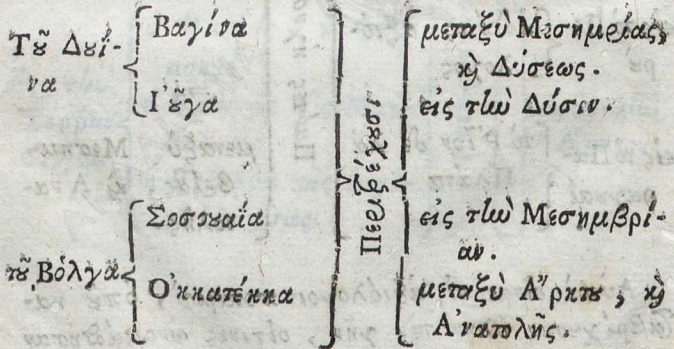 Τοῦ Δουΐ-
να
Βαγίνα
Ι'οῦγα
τοῦ Βόλγα
Σοσουαΐα
Ο'κκατέκκα
Περιτρέχουσι
μεταξὺ Μεσημβρίας,
ϗ Δύσεως.
εἰς τὴν Δύσιν.
εἰς τὴν Μεσημβρί-
αν.
μεταξὺ Α῎ρκτου, ϗ
Α'νατολῆς.